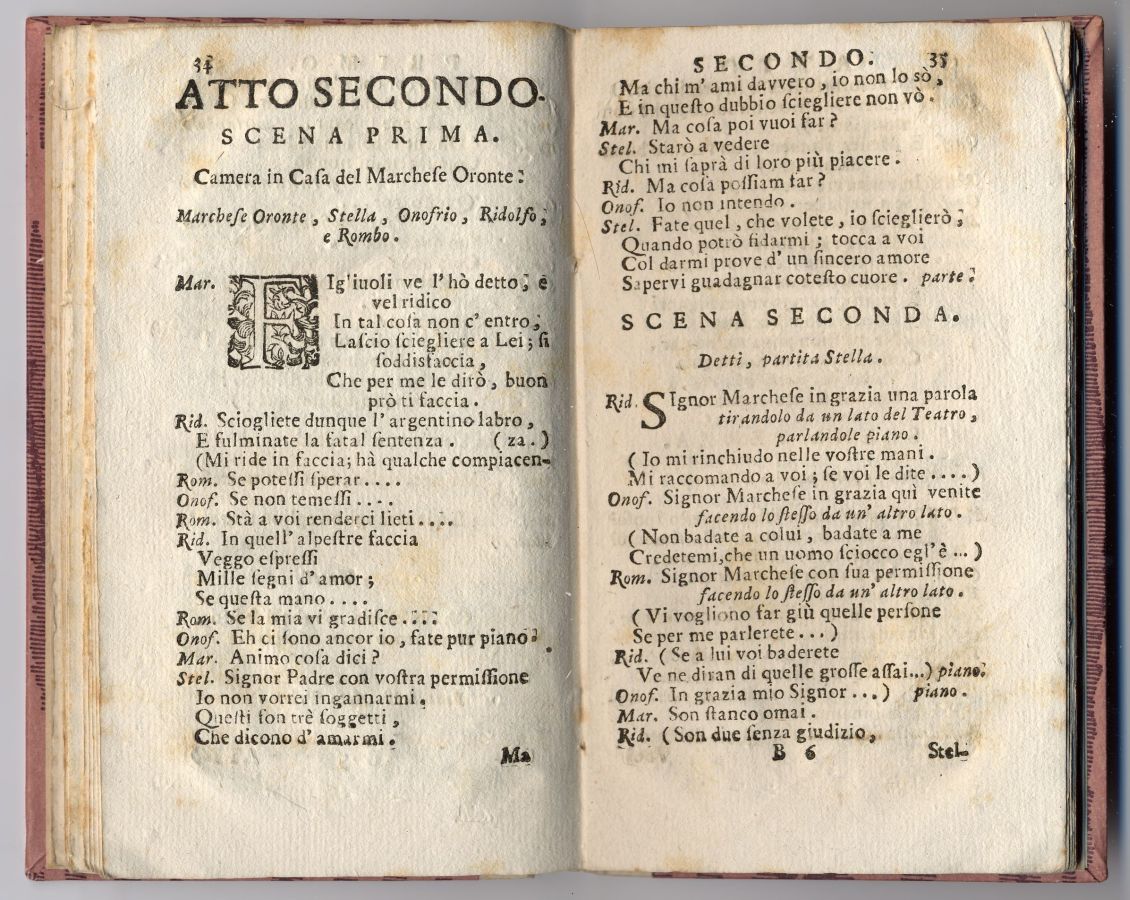 34
ATTO SECONDO.
SCENA PRIMA.
Camera in Caſa del Marcheſe Oronte:
Marcheſe Oronte, Stella, Onofrio, Ridolfo,
e Rombo.
Mar. FIg'iuoli ve l' hò detto, e
vel ridico
In tal coſa non c' entro,
Laſcio ſciegliere a Lei; ſi
ſoddisfaccia,
Che per me le dirò, buon
prò ti faccia.
Rid. Sciogliete dunque l' argentino labro,
E fulminate la fatal ſentenza. (za.)
(Mi ride in faccia; hà qualche compiacen-
Rom. Se poteſſi ſperar....
Onof. Se non temeſſi....
Rom. Stà a voi renderci lieti....
Rid. In quell' alpeſtre faccia
Veggo eſpreſſi
Mille ſegni d' amor;
Se queſta mano....
Rom. Se la mia vi gradiſce....
Onof. Eh ci ſono ancor io, fate pur piano.
Mar. Animo coſa dici?
Stel. Signor Padre con voſtra permiſſione
Io non vorrei ingannarmi.
Queſti ſon trè ſoggetti,
Che dicono d' amarmi.
Ma
SECONDO. 35
Ma chi m' ami davvero, io non lo sò,
E in queſto dubbio ſciegliere non vò.
Mar. Ma coſa poi vuoi far?
Stel. Starò a vedere
Chi mi ſaprà di loro più piacere.
Rid. Ma coſa poſſiam far?
Onof. Io non intendo.
Stel. Fate quel, che volete, io ſcieglierò,
Quando potrò fidarmi; tocca a voi
Col darmi prove d' un ſincero amore
Sapervi guadagnar coteſto cuore. parte.
SCENA SECONDA.
Detti, partita Stella.
Rid. SIgnor Marcheſe in grazia una parola
tirandolo da un lato del Teatro,
parlandole piano.
(Io mi rinchiudo nelle voſtre mani.
Mi raccomando a voi; ſe voi le dite....)
Onof. Signor Marcheſe in grazia quì venite
facendo lo ſteſſo da un' altro lato.
(Non badate a colui, badate a me
Credetemi,che un uomo ſciocco egl' è...)
Rom. Signor Marcheſe con ſua permiſſione
facendo lo ſteſſo da un' altro lato.
(Vi vogliono far giù quelle perſone
Se per me parlerete...)
Rid. (Se a lui voi baderete
Ve ne diran di quelle groſſe aſſai...) piano.
Onof. In grazia mio Signor...) piano.
Mar. Son ſtanco omai.
Rid. (Son due ſenza giudizio,
B 6 Stel-